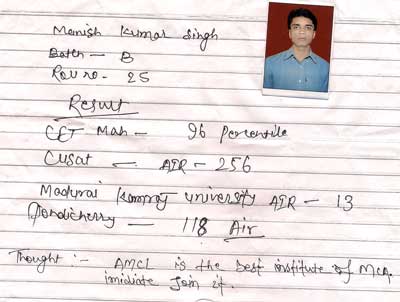 Manish Kumar Singh
Batch - B
Roll no. - 25
Result
CET Mah - 96 Percentile
Cusat - AIR - 256
Madurai Kamraj university AIR - 13
Pondicherry - 118 Air
Thought :- AMCL is the best institute of MCA.
imidiate Join it.